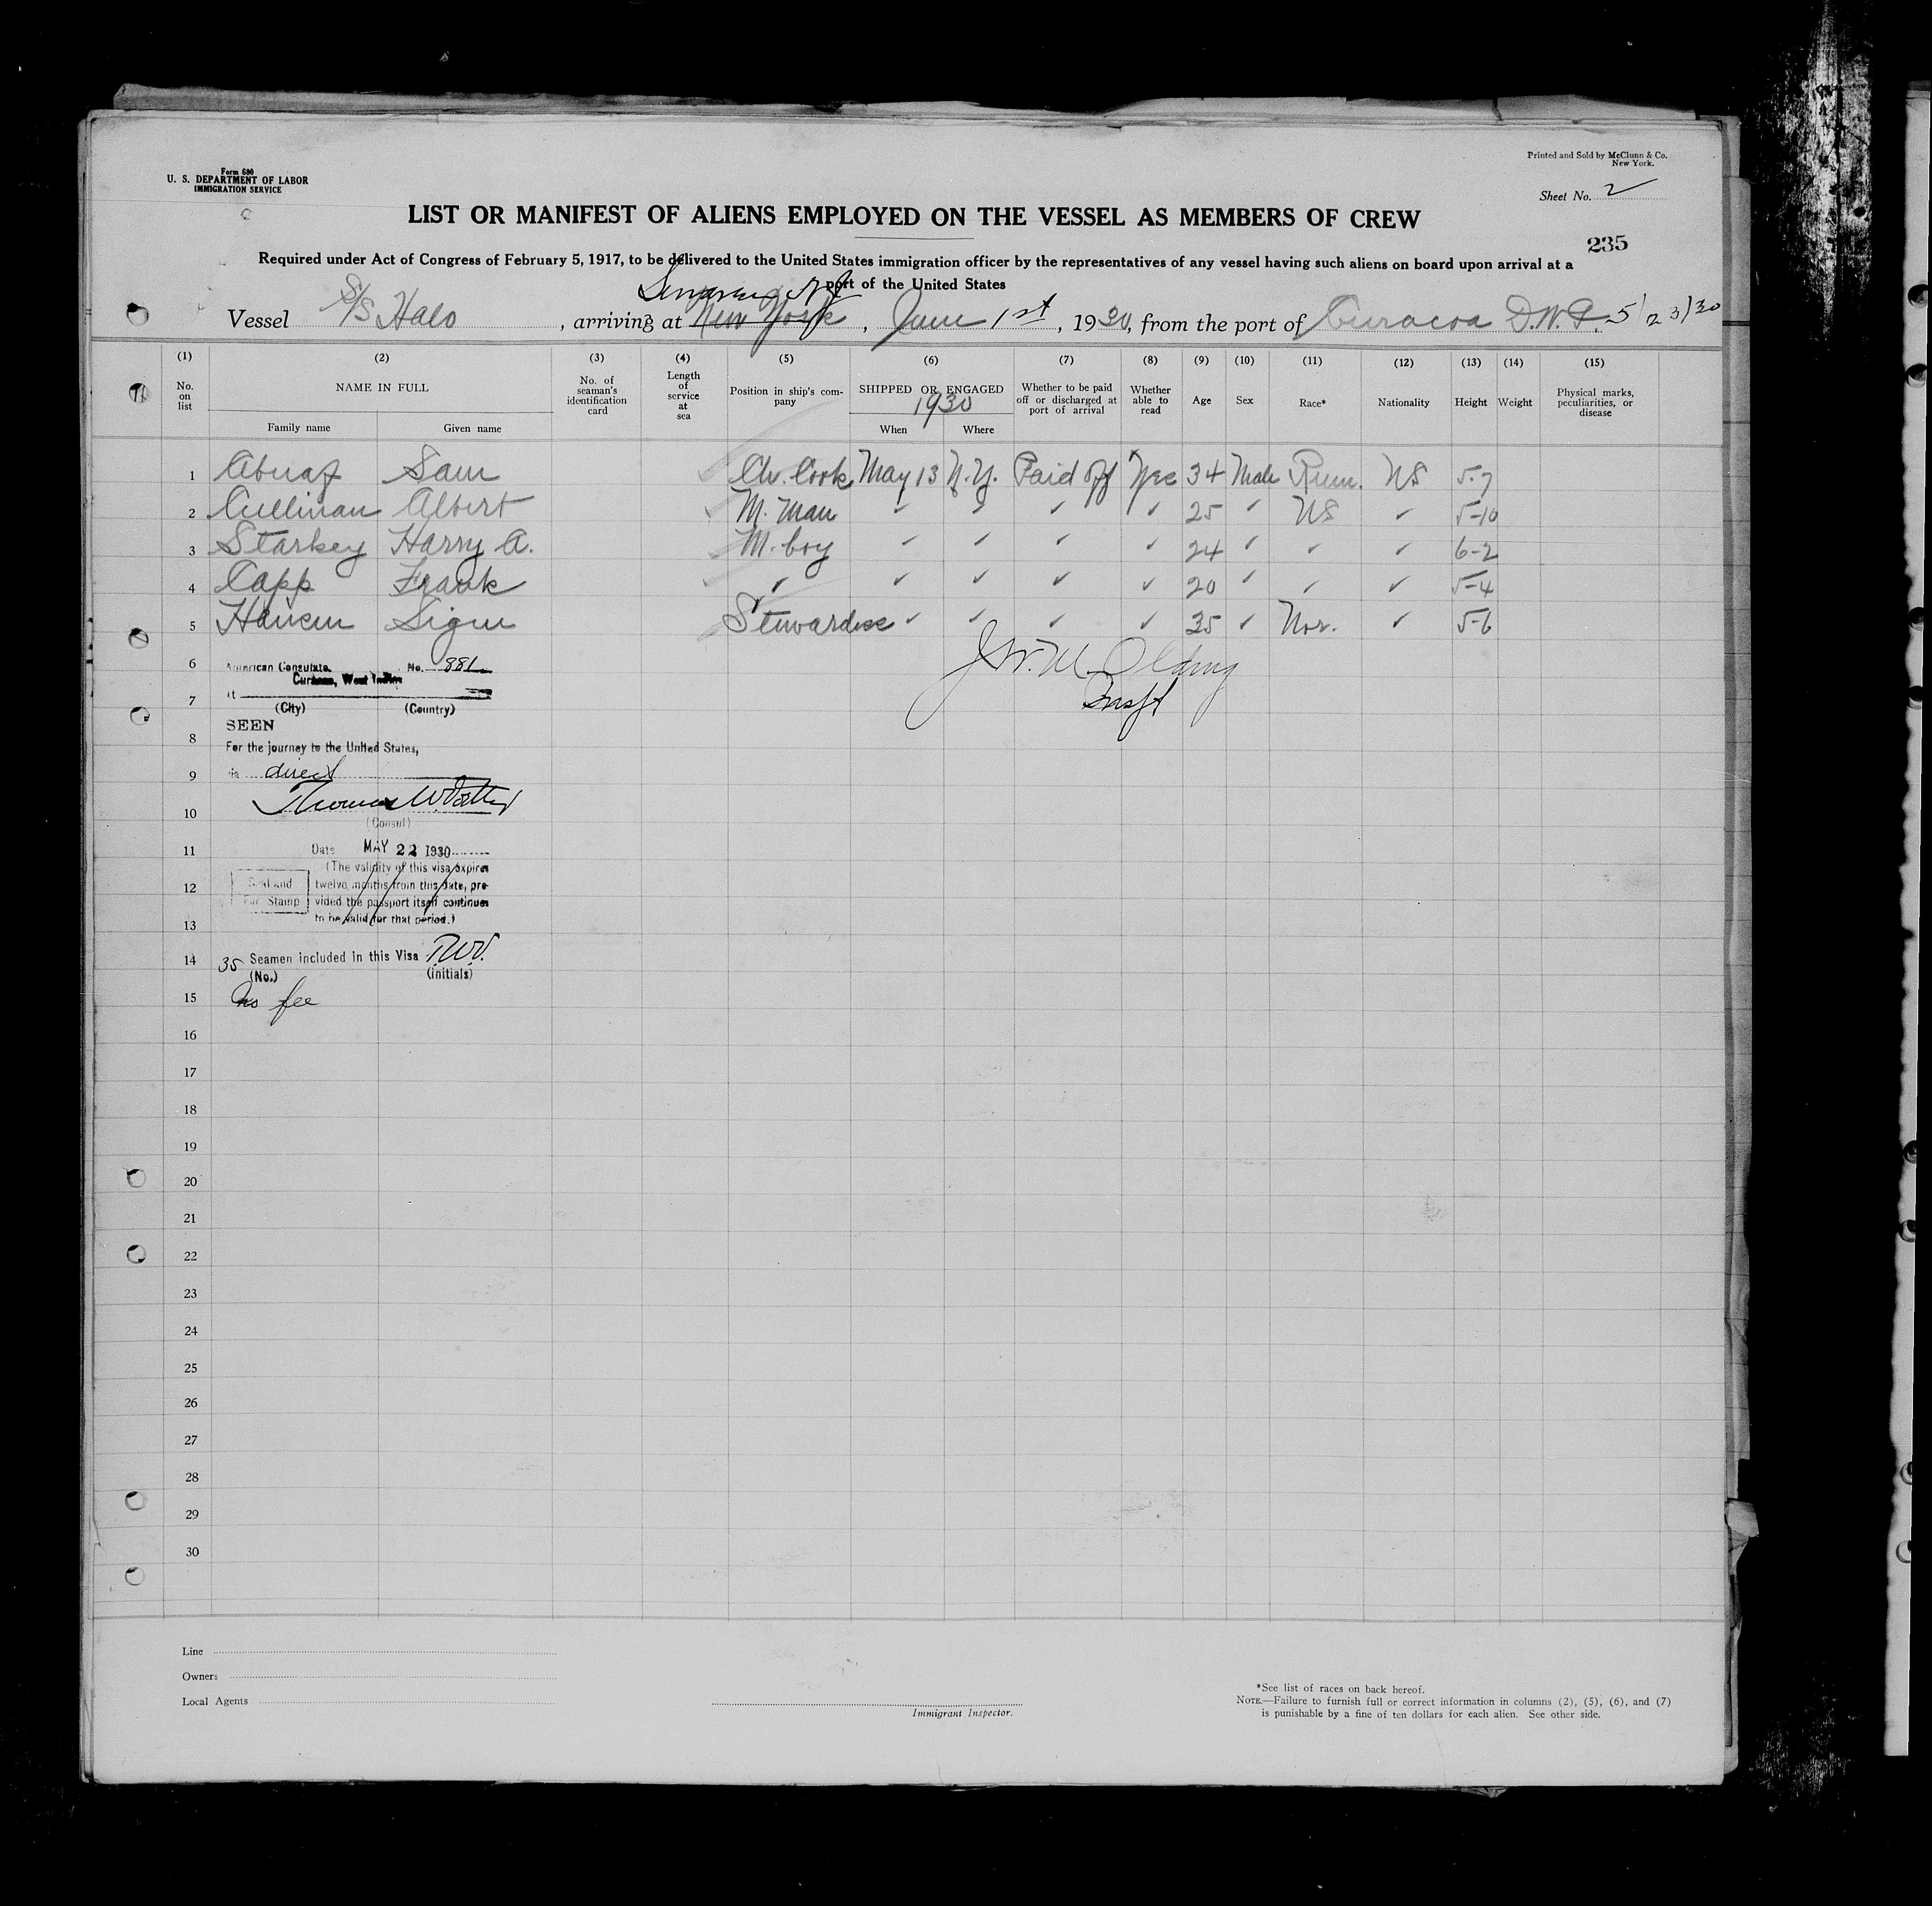 Form 680
U. S. DEPARTMENT OF LABOR
IMMIGRATION SERVICE
Printed and Sold by McClunn & Co.
New York.
Sheet No. 2
LIST OR MANIFEST OF ALIENS EMPLOYED ON THE VESSEL AS MEMBERS OF CREW
235
Required under Act of Congress of February 5, 1917, to be delivered to the United States immigration officer by the representatives of any vessel having such aliens on board upon arrival at a
port of the United States
Vessel S/S Halo, arriving at New York, June 1st, 1930, from the port of Curacoa D.W.I. 5/23/30
(1) (2) (3) (4) (5) (6) (7) (8) (9) (10) (11) (12) (13) (14) (15)
No. on list
NAME IN FULL
Family name Given name
No. of seaman's identification card
Length of service at sea
Position in ship's company
SHIPPED OR ENGAGED
1930
When Where
Whether to be paid off or discharged at port of arrival
Whether able to read
Age
Sex
Race*
Nationality
Height
Weight
Physical marks, peculiarities, or disease
1 Abuaf Sam Ch. Cook May 13 N.Y. Paid off Yes 34 Male Rum. US 5-7
2 Cullinan Albert M. Man ✓ ✓ ✓ ✓ 25 ✓ US ✓ 5-10
3 Starkey Harry A. M. boy ✓ ✓ ✓ ✓ 24 ✓ ✓ ✓ 6-2
4 Capp Frank ✓ ✓ ✓ ✓ ✓ 20 ✓ ✓ ✓ 5-4
5 Hansen Signe Stewardess ✓ ✓ ✓ ✓ 35 ✓ Nor. ✓ 5-6
6
7
8
9
10
11
12
13
14
15
16
17
18
19
20
21
22
23
24
25
26
27
28
29
30
American Consulate No. 881
Curacao, West Indies
at
(City) (Country)
SEEN
For the journey to the United States,
via direct
Thomas W.
(Consul)
Date MAY 22 1930
(The validity of this visa expires
twelve months from this date, pro-
vided the passport itself continues
to be valid for that period.)
Seal and
Fee Stamp
35 Seamen included in this Visa T.W.V.
(No.) (initials)
no fee
Line
Owners
Local Agents
Immigrant Inspector.
*See list of races on back hereof.
NOTE.—Failure to furnish full or correct information in columns (2), (5), (6), and (7)
is punishable by a fine of ten dollars for each alien. See other side.